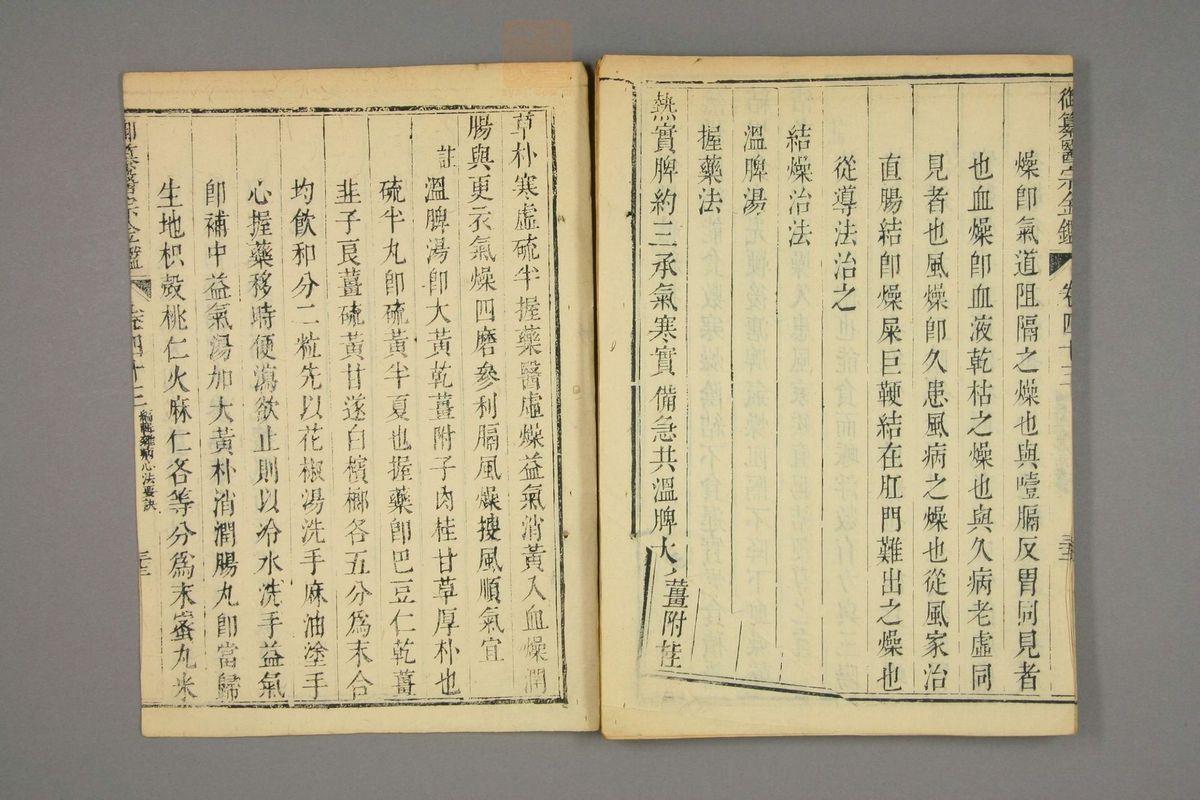 御纂醫宗金鑑 卷四十三
燥卽氣道阻隔之燥也與噎膈反胃同見者
也血燥卽血液乾枯之燥也與久病老虛同
見者也風燥卽久患風病之燥也從風家治
直腸結卽燥屎巨鞕結在肛門難出之燥也
從導法治之
結燥治法
溫脾湯
握藥法
熱實脾約三承氣寒實備急共溫脾大 薑附桂
草朴寒虛硫半握藥醫虛燥益氣消黃入血燥潤
腸與更衣氣燥四磨參利膈風燥搜風順氣宜
註 溫脾湯卽大黃乾薑附子肉桂甘草厚朴也
硫半丸卽硫黃半夏也握藥卽巴豆仁乾薑
韭子良薑硫黃甘遂白檳榔各五分爲末合
均飲和分二粒先以花椒湯洗手麻油塗手
心握藥移時便瀉欲止則以冷水洗手益氣
卽補中益氣湯加大黃朴消潤腸丸卽當歸
生地枳殼桃仁火麻仁各等分爲末蜜丸米
編輯雜病心法要訣